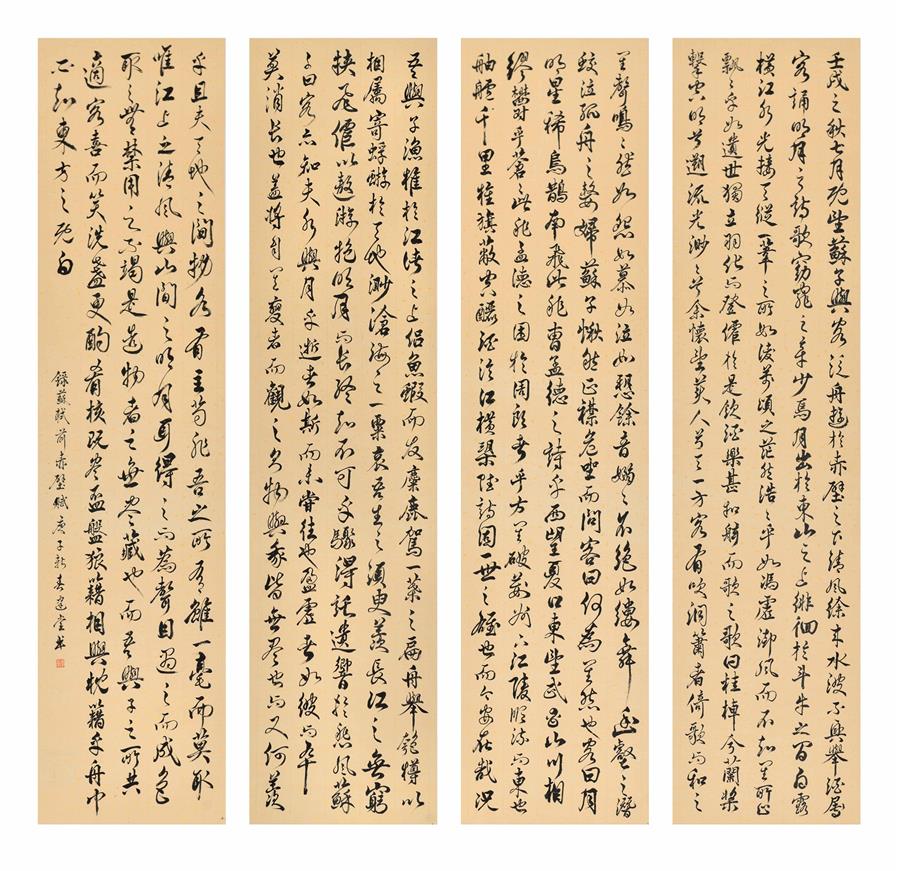 壬戌之秋七月既望蘇子與客泛舟遊於赤壁之下清風徐來水波不興舉酒屬
客誦明月之詩歌窈窕之章少焉月出於東山之上徘徊於斗牛之間白露
橫江水光接天縱一葦之所如凌萬頃之茫然浩浩乎如馮虛御風而不知其所止
飄飄乎如遺世獨立羽化而登僊於是飲酒樂甚扣舷而歌之歌曰桂棹兮蘭槳
擊空明兮遡流光渺渺兮余懷望美人兮天一方客有吹洞簫者倚歌而和之
其聲嗚嗚然如怨如慕如泣如愬餘音嫋嫋不絕如縷舞幽壑之潛
蛟泣孤舟之嫠婦蘇子愀然正襟危坐而問客曰何為其然也客曰月
明星稀烏鵲南飛此非曹孟德之詩乎西望夏口東望武昌山川相
繆鬱乎蒼蒼此非孟德之困於周郎者乎方其破荊州下江陵順流而東也
舳艫千里旌旗蔽空釃酒臨江橫槊賦詩固一世之雄也而今安在哉況
吾與子漁樵於江渚之上侶魚鰕而友麋鹿駕一葉之扁舟舉匏樽以
相屬寄蜉蝣於天地渺滄海之一粟哀吾生之須臾羨長江之無窮
挾飛僊以遨遊抱明月而長終知不可乎驟得託遺響於悲風蘇
子曰客亦知夫水與月乎逝者如斯而未嘗往也盈虛者如彼而卒
莫消長也蓋將自其變者而觀之物與我皆無盡也而又何羨
乎且夫天地之間物各有主苟非吾之所有雖一毫而莫取
惟江上之清風與山間之明月耳得之而為聲目遇之而成色
取之無禁用之不竭是造物者之無盡藏也而吾與子之所共
適客喜而笑洗盞更酌肴核既盡盃盤狼藉相與枕藉乎舟中
不知東方之既白
錄蘇軾前赤壁賦庚子新春建堂書